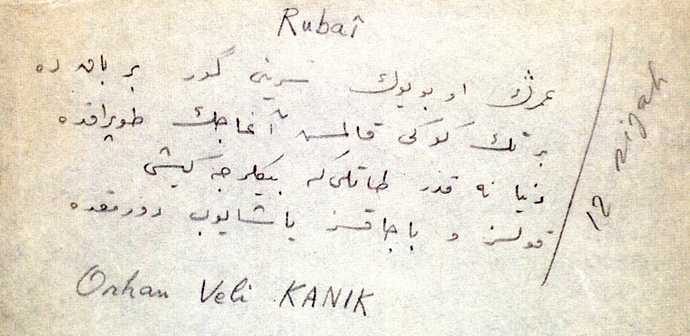 Rubaî
عمرڭ او بویوك سرینی گور بر باق ده
بر تك كوكی قالمش آغاجك طوپراقده
دنیا نه قدر طاتلی كه بیكلرجه كیشی
قولسز و باجاقسز یاشایوب دورمقده
12 siyah
Orhan Veli KANIK